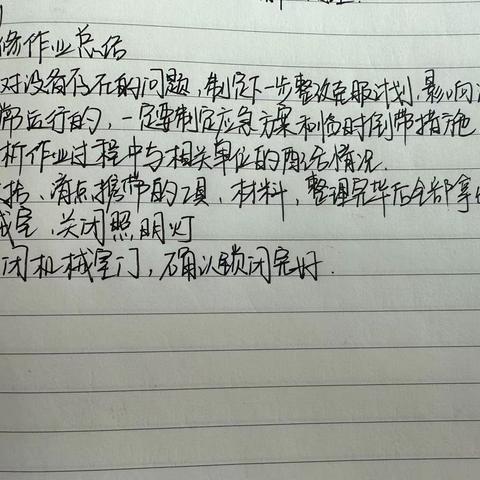 修作业总结
对设备存在的问题,制定下一步整改克服计划,影响
常运行的,一定要制定应急方案和临时倒带措施
析作业过程中与相关单位的配活情况.
括、清点携带的工具、材料,整理完毕后全部拿
械室,关闭照明灯
闭机械室门,确认锁闭完好.